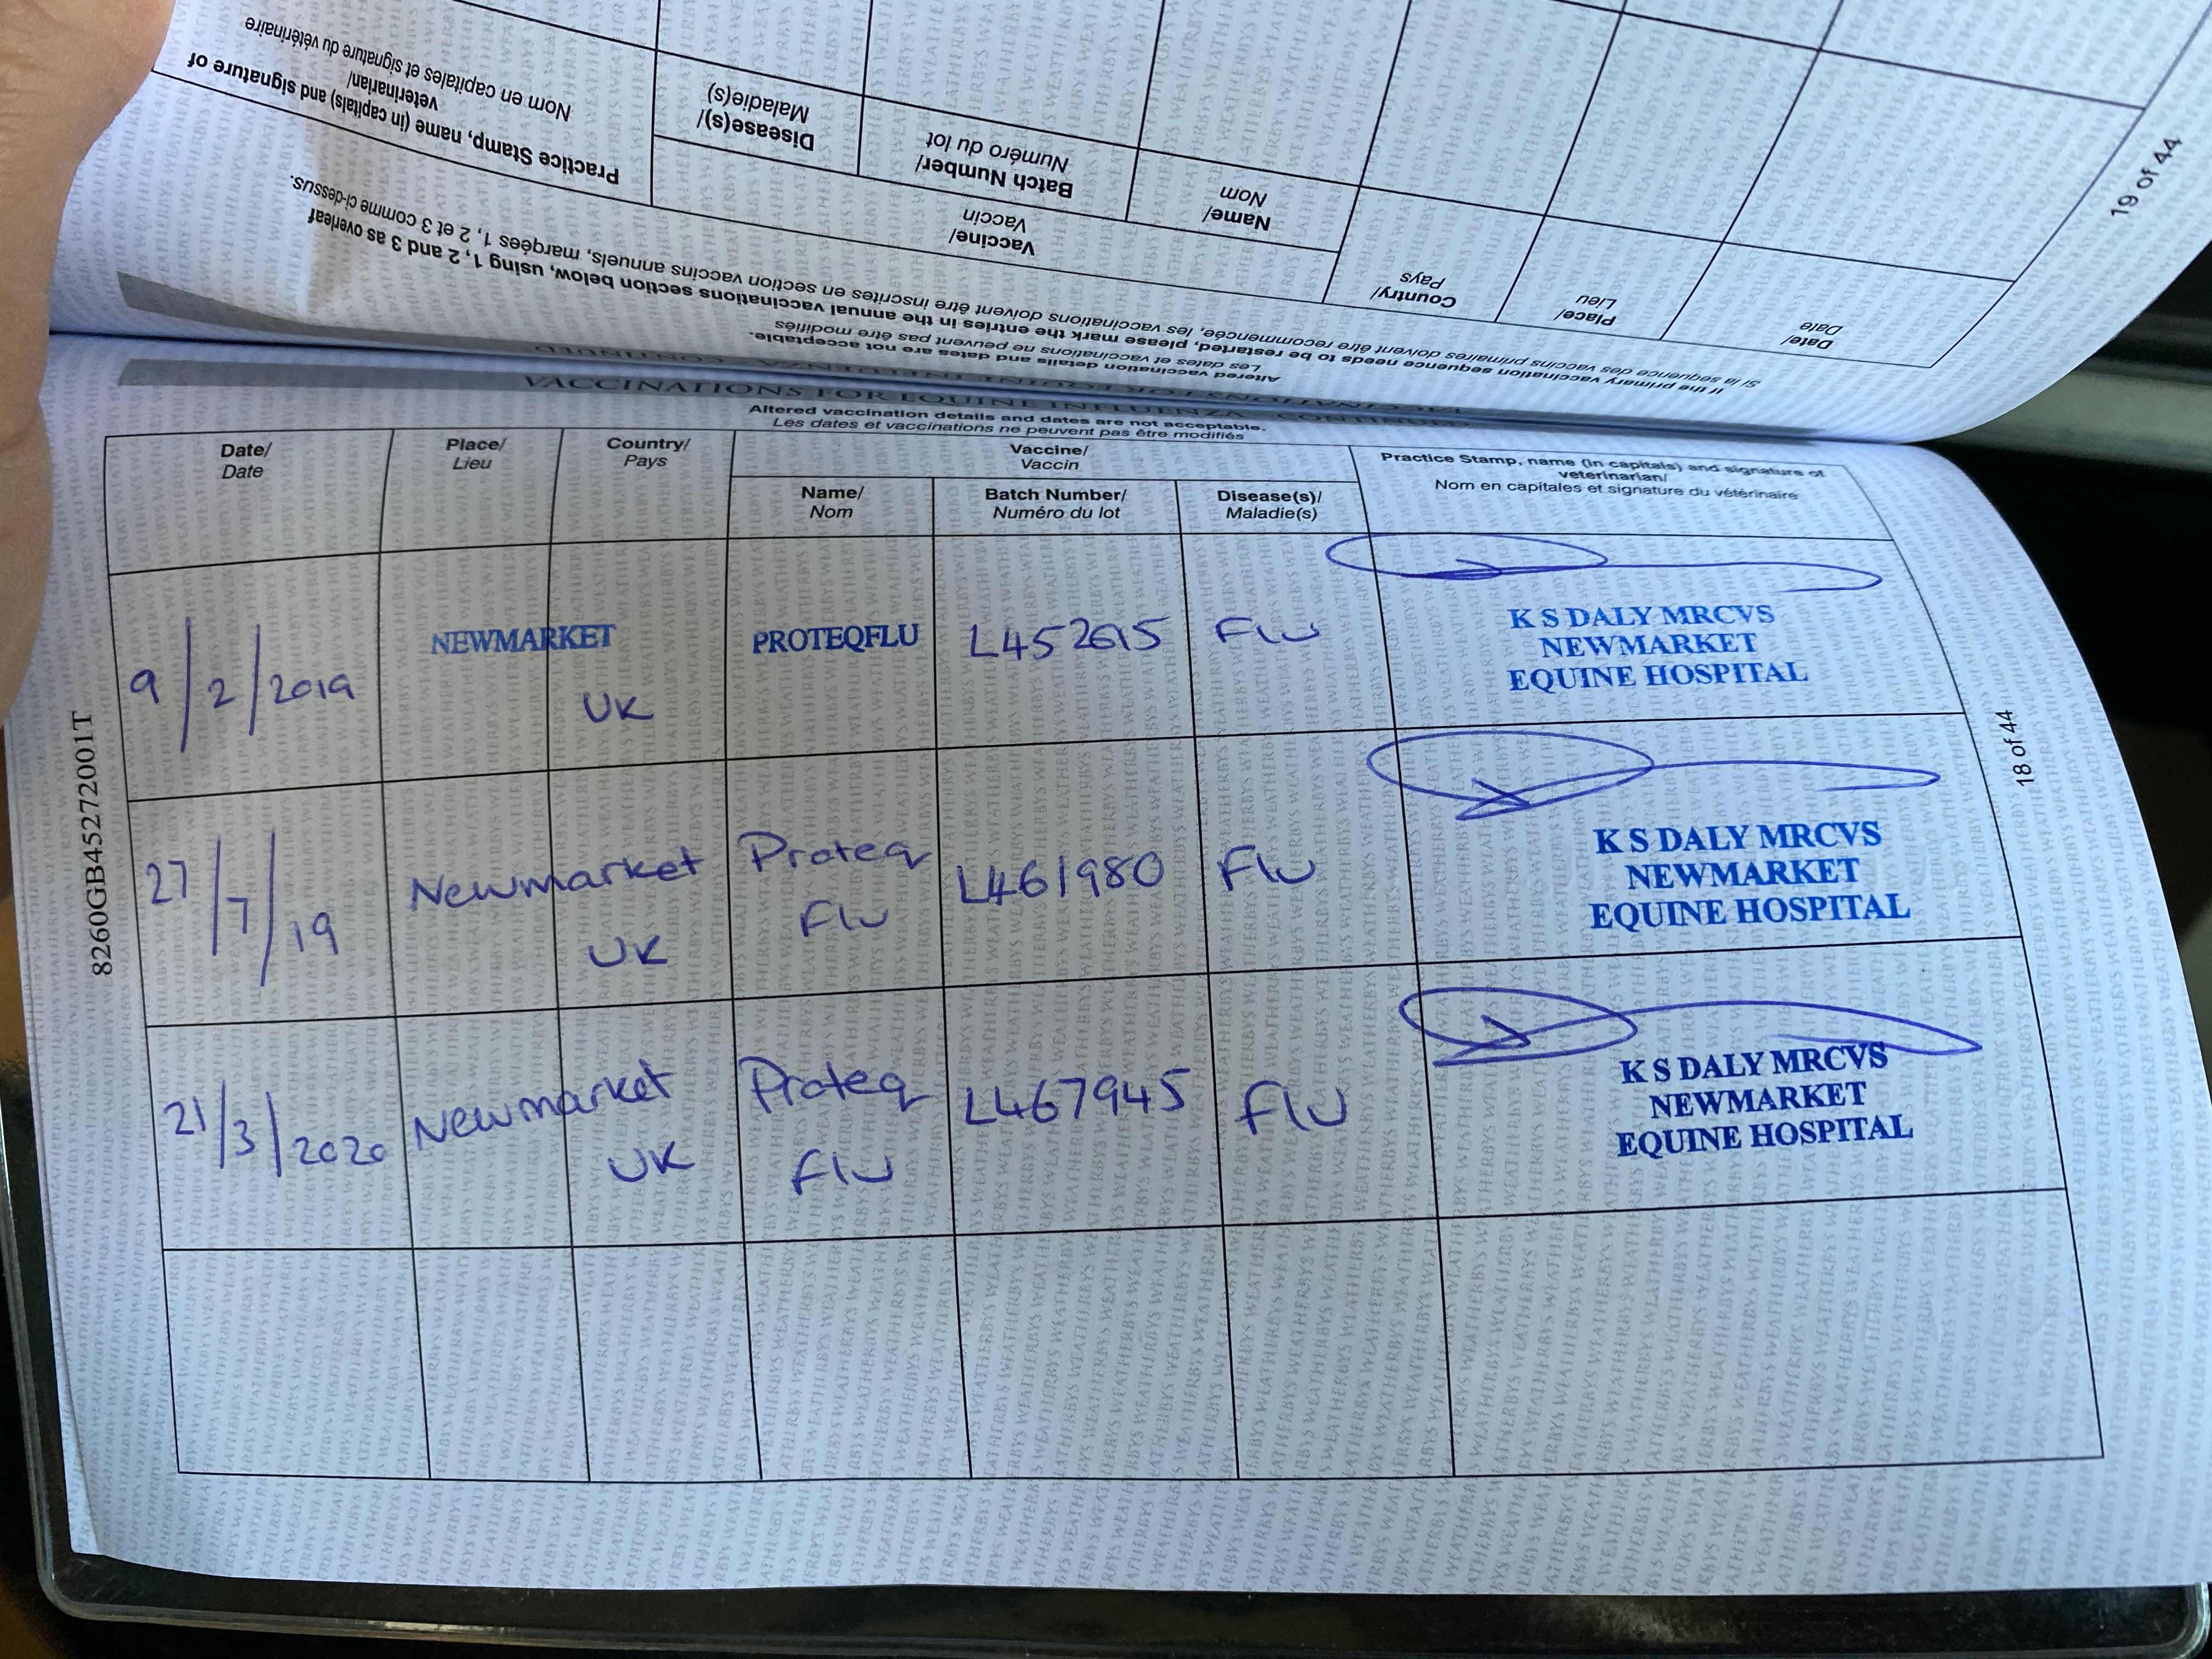 Practice Stamp, name (in capitals) and signature of
veterinarian/
Nom en capitales et signature du vétérinaire
Disease(s)/
Maladie(s)
Batch Number/
Numéro du lot
Name/
Nom
Vaccine/
Vaccin
Country/
Pays
Place/
Lieu
Date/
Date
If the primary vaccination sequence needs to be restarted, please mark the entries in the annual vaccinations section below, using 1, 2 and 3 as overleaf
Si la séquence des vaccins primaires doivent être recommencée, les vaccinations doivent être inscrites en section vaccins annuels, marqées 1, 2 et 3 comme ci-dessus.
Altered vaccination details and dates are not acceptable.
Les dates et vaccinations ne peuvent pas être modifiés
19 of 44
VACCINATIONS FOR EQUINE INFLUENZA - CONTINUED
Altered vaccination details and dates are not acceptable.
Les dates et vaccinations ne peuvent pas être modifiés
Date/
Date
Place/
Lieu
Country/
Pays
Vaccine/
Vaccin
Name/
Nom
Batch Number/
Numéro du lot
Disease(s)/
Maladie(s)
Practice Stamp, name (in capitals) and signature of
veterinarian/
Nom en capitales et signature du vétérinaire
9/2/2019
NEWMARKET
UK
PROTEQFLU
Flu
K S DALY MRCVS
NEWMARKET
EQUINE HOSPITAL
27/7/19
Newmarket
UK
Proteq
Flu
L461980
Flu
K S DALY MRCVS
NEWMARKET
EQUINE HOSPITAL
21/3/2020
Newmarket
UK
Proteq
flu
L467945
flu
K S DALY MRCVS
NEWMARKET
EQUINE HOSPITAL
8260GB45272001T
18 of 44